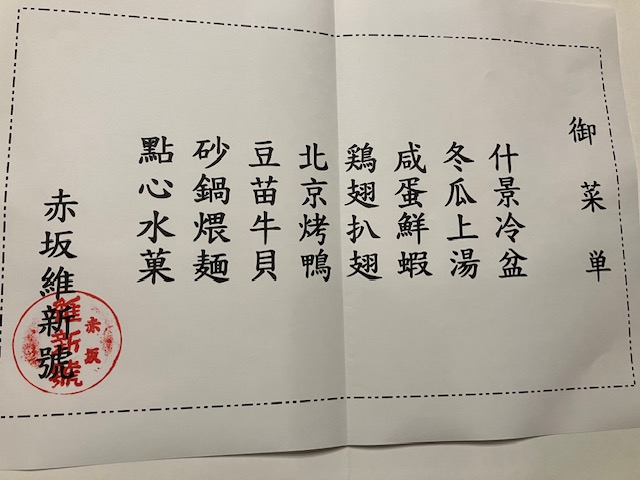 御菜単
什景冷盆
冬瓜上湯
咸蛋鮮蝦
鶏翅扒翅
北京烤鴨
豆苗牛貝
砂鍋煨麺
點心水菓
赤坂維新號
赤坂
維新號